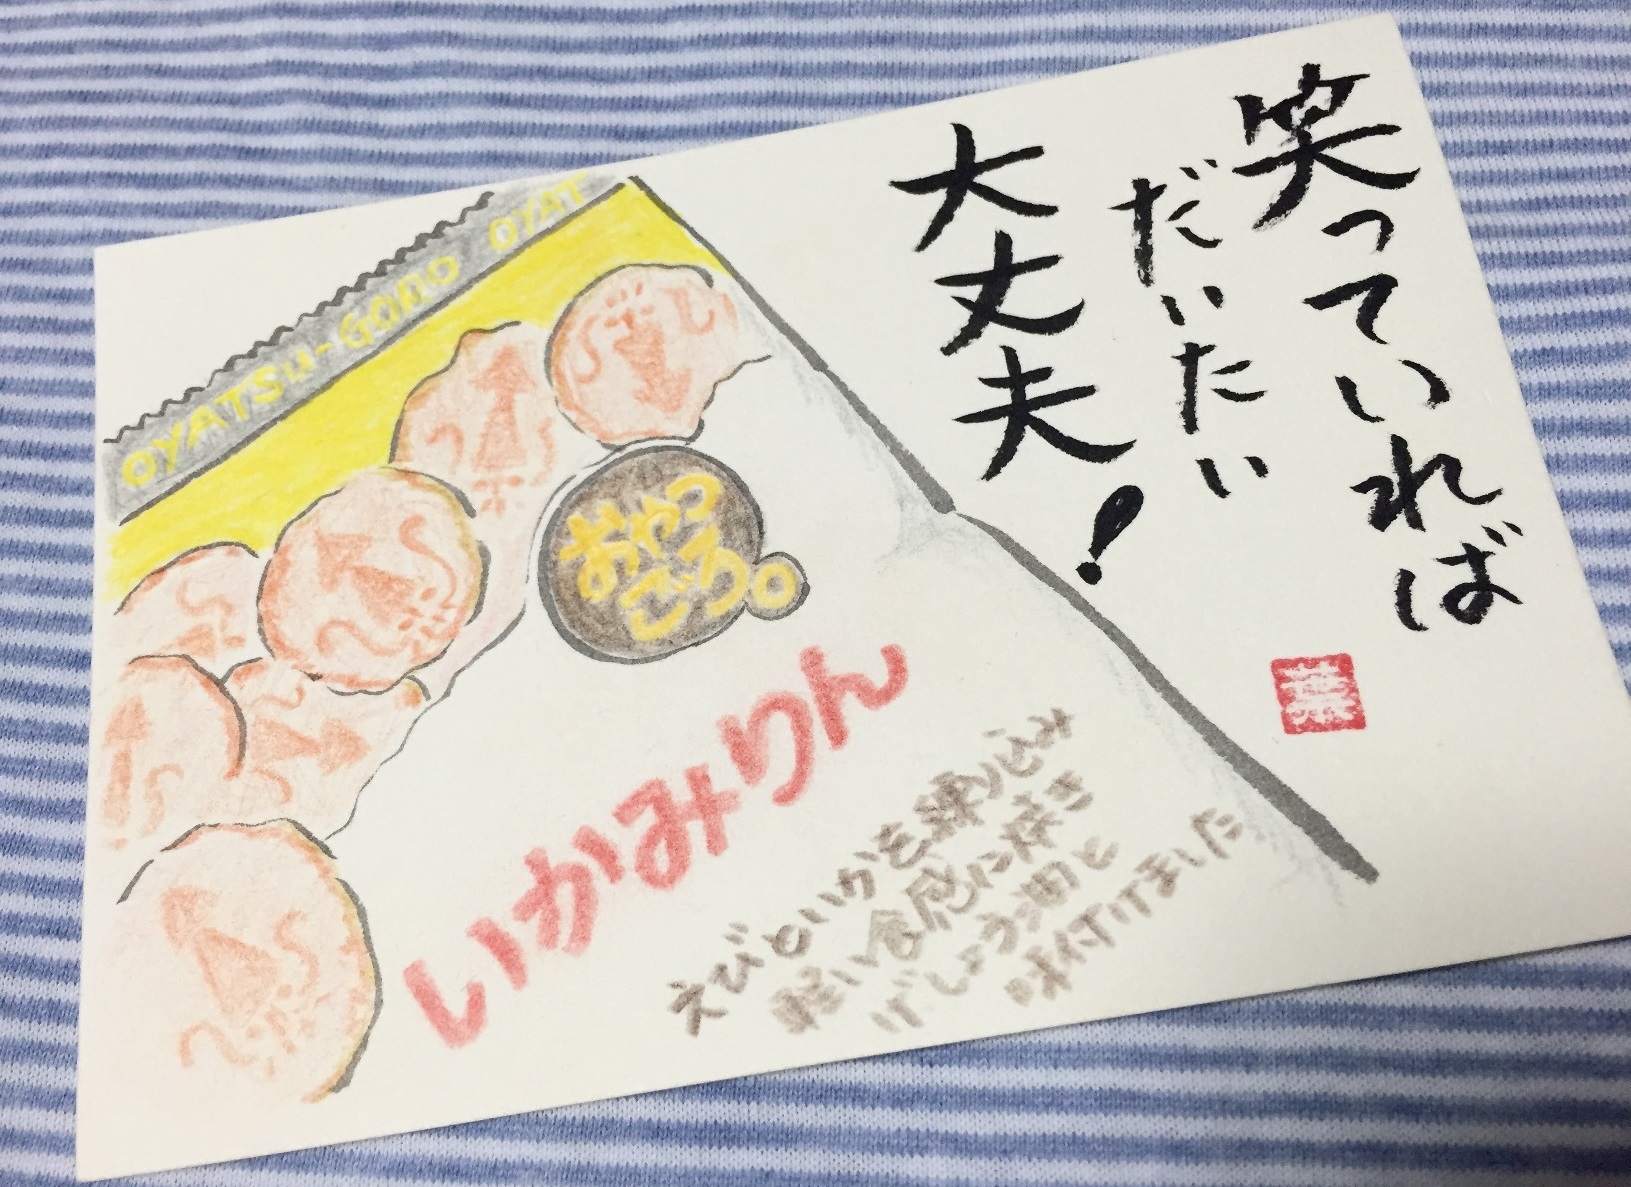 笑っていれば
だいたい
大丈夫！
葉
OYATSU-GORO OYAT
おやつ
ごろ。
いかみりん
えびといかを練り込み
軽い食感に焼き
しょうゆと
味付けました